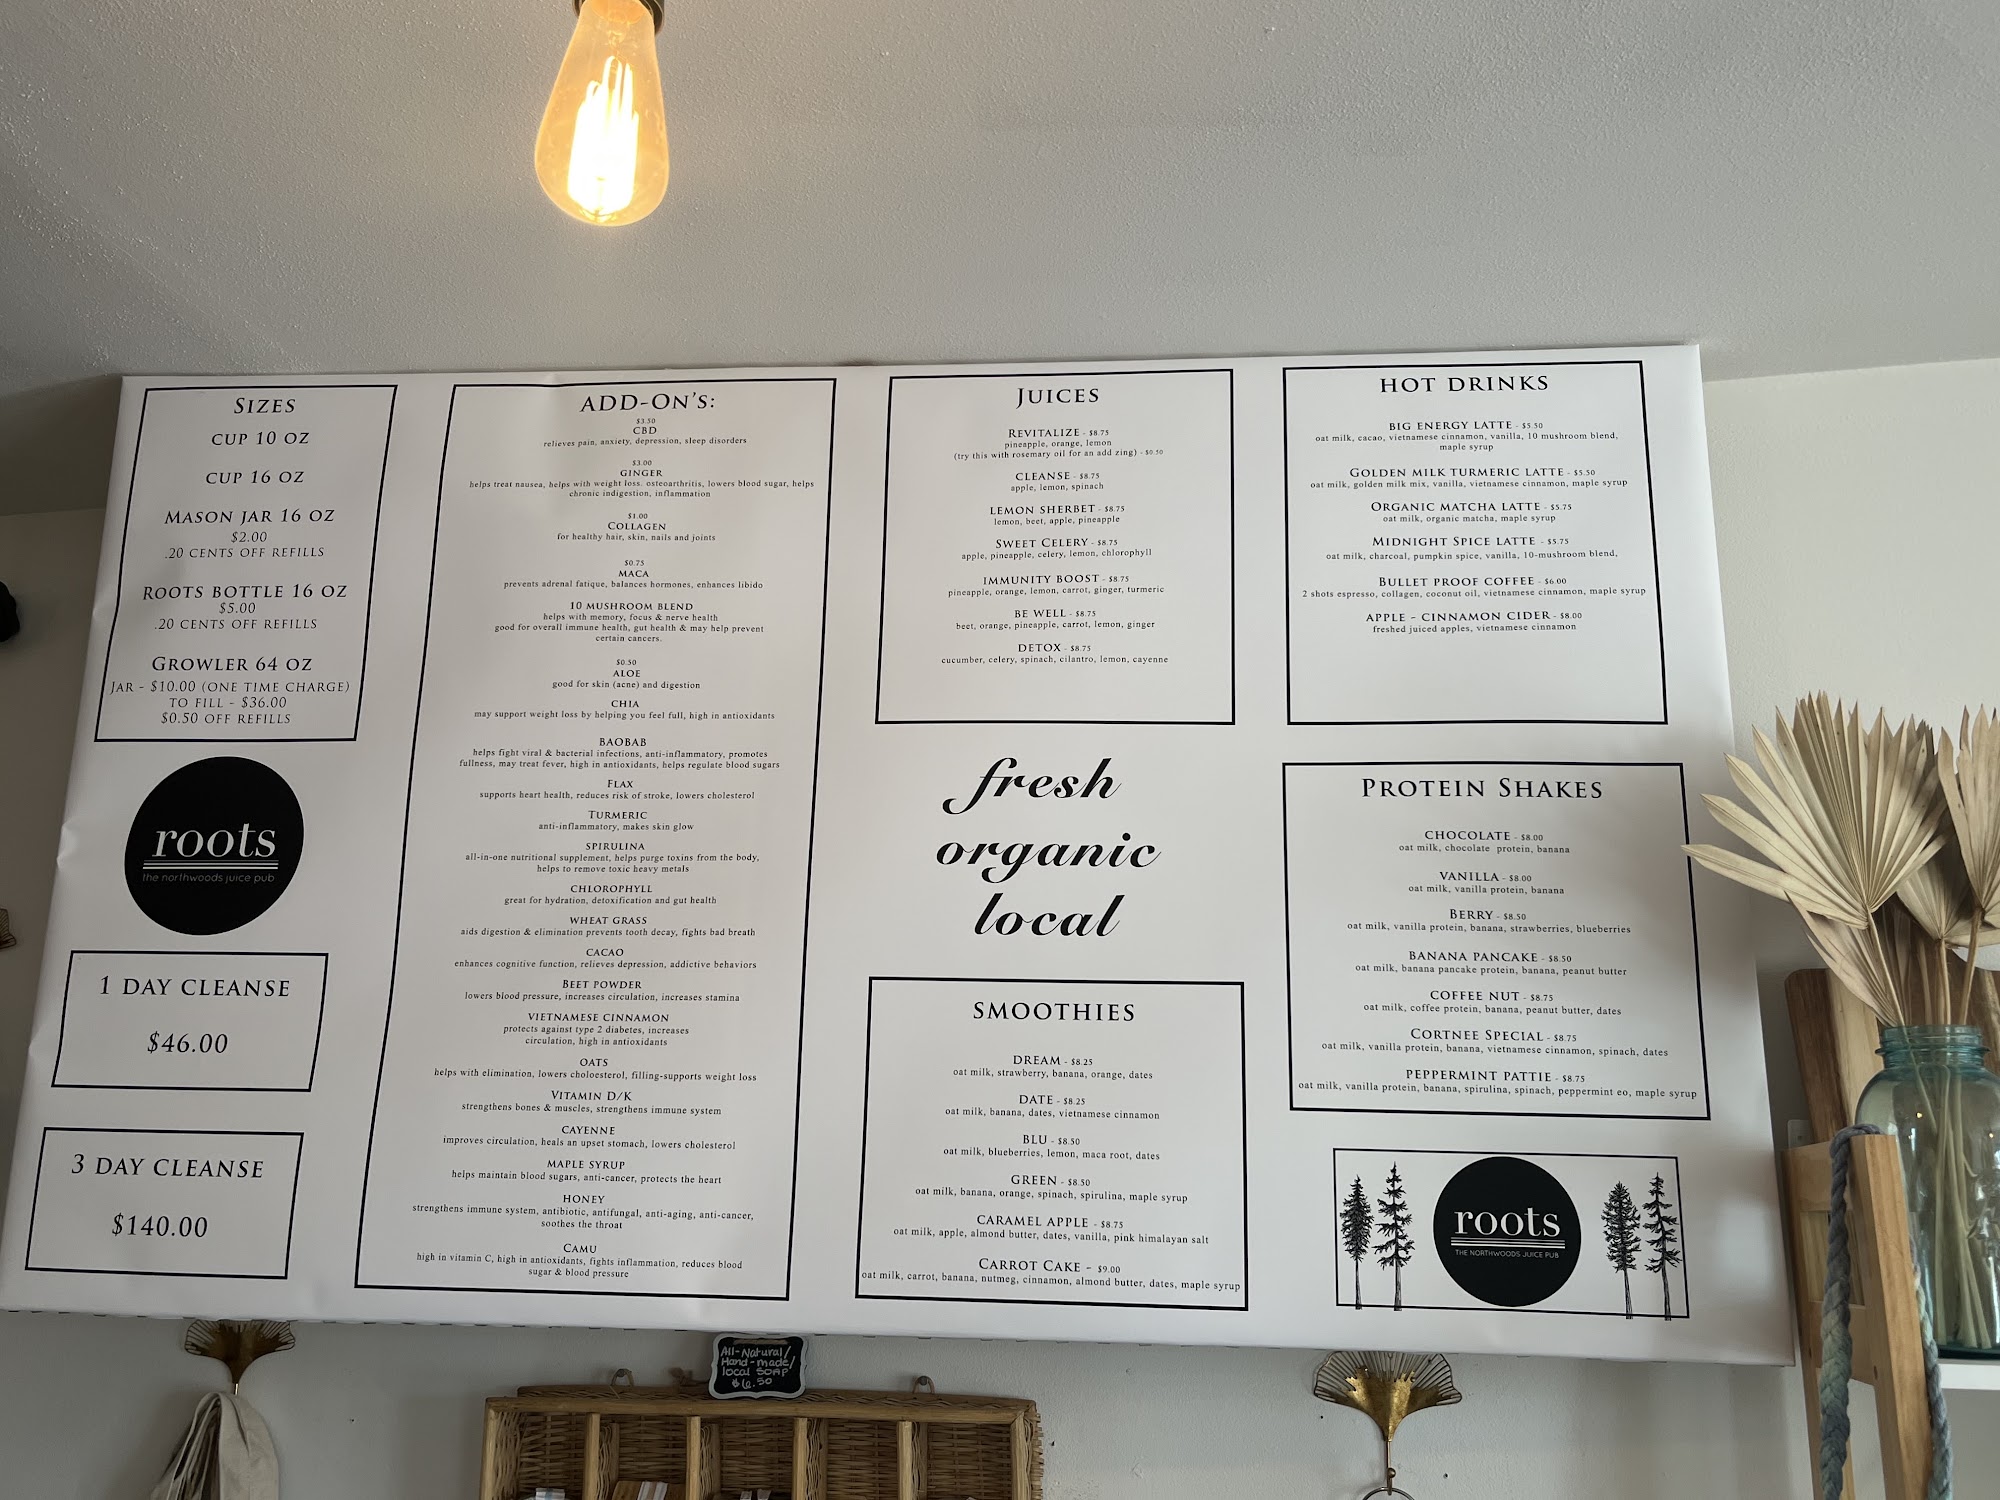 SIZES
CUP 10 OZ
CUP 16 OZ
MASON JAR 16 OZ
$2.00
.20 CENTS OFF REFILLS
ROOTS BOTTLE 16 OZ
$5.00
.20 CENTS OFF REFILLS
GROWLER 64 OZ
JAR - $10.00 (ONE TIME CHARGE)
TO FILL - $36.00
$0.50 OFF REFILLS
roots
the northwoods juice pub
1 DAY CLEANSE
$46.00
3 DAY CLEANSE
$140.00
ADD-ON'S:
$3.50
CBD
relieves pain, anxiety, depression, sleep disorders
$3.00
GINGER
helps treat nausea, helps with weight loss. osteoarthritis, lowers blood sugar, helps
chronic indigestion, inflammation
$1.00
COLLAGEN
for healthy hair, skin, nails and joints
$0.75
MACA
prevents adrenal fatique, balances hormones, enhances libido
10 MUSHROOM BLEND
helps with memory, focus & nerve health
good for overall immune health, gut health & may help prevent
certain cancers.
$0.50
ALOE
good for skin (acne) and digestion
CHIA
may support weight loss by helping you feel full, high in antioxidants
BAOBAB
helps fight viral & bacterial infections, anti-inflammatory, promotes
fullness, may treat fever, high in antioxidants, helps regulate blood sugars
FLAX
supports heart health, reduces risk of stroke, lowers cholesterol
TURMERIC
anti-inflammatory, makes skin glow
SPIRULINA
all-in-one nutritional supplement, helps purge toxins from the body,
helps to remove toxic heavy metals
CHLOROPHYLL
great for hydration, detoxification and gut health
WHEAT GRASS
aids digestion & elimination prevents tooth decay, fights bad breath
CACAO
enhances cognitive function, relieves depression, addictive behaviors
BEET POWDER
lowers blood pressure, increases circulation, increases stamina
VIETNAMESE CINNAMON
protects against type 2 diabetes, increases
circulation, high in antioxidants
OATS
helps with elimination, lowers choloesterol, filling-supports weight loss
VITAMIN D/K
strengthens bones & muscles, strengthens immune system
CAYENNE
improves circulation, heals an upset stomach, lowers cholesterol
MAPLE SYRUP
helps maintain blood sugars, anti-cancer, protects the heart
HONEY
strengthens immune system, antibiotic, antifungal, anti-aging, anti-cancer,
soothes the throat
CAMU
high in vitamin C, high in antioxidants, fights inflammation, reduces blood
sugar & blood pressure
JUICES
REVITALIZE - $8.75
pineapple, orange, lemon
(try this with rosemary oil for an add zing) - $0.50
CLEANSE - $8.75
apple, lemon, spinach
LEMON SHERBET - $8.75
lemon, beet, apple, pineapple
SWEET CELERY - $8.75
apple, pineapple, celery, lemon, chlorophyll
IMMUNITY BOOST - $8.75
pineapple, orange, lemon, carrot, ginger, turmeric
BE WELL - $8.75
beet, orange, pineapple, carrot, lemon, ginger
DETOX - $8.75
cucumber, celery, spinach, cilantro, lemon, cayenne
fresh
organic
local
SMOOTHIES
DREAM - $8.25
oat milk, strawberry, banana, orange, dates
DATE - $8.25
oat milk, banana, dates, vietnamese cinnamon
BLU - $8.50
oat milk, blueberries, lemon, maca root, dates
GREEN - $8.50
oat milk, banana, orange, spinach, spirulina, maple syrup
CARAMEL APPLE - $8.75
oat milk, apple, almond butter, dates, vanilla, pink himalayan salt
CARROT CAKE - $9.00
oat milk, carrot, banana, nutmeg, cinnamon, almond butter, dates, maple syrup
HOT DRINKS
BIG ENERGY LATTE - $5.50
oat milk, cacao, vietnamese cinnamon, vanilla, 10 mushroom blend,
maple syrup
GOLDEN MILK TURMERIC LATTE - $5.50
oat milk, golden milk mix, vanilla, vietnamese cinnamon, maple syrup
ORGANIC MATCHA LATTE - $5.75
oat milk, organic matcha, maple syrup
MIDNIGHT SPICE LATTE - $5.75
oat milk, charcoal, pumpkin spice, vanilla, 10-mushroom blend,
BULLET PROOF COFFEE - $6.00
2 shots espresso, collagen, coconut oil, vietnamese cinnamon, maple syrup
APPLE - CINNAMON CIDER - $8.00
freshed juiced apples, vietnamese cinnamon
PROTEIN SHAKES
CHOCOLATE - $8.00
oat milk, chocolate protein, banana
VANILLA - $8.00
oat milk, vanilla protein, banana
BERRY - $8.50
oat milk, vanilla protein, banana, strawberries, blueberries
BANANA PANCAKE - $8.50
oat milk, banana pancake protein, banana, peanut butter
COFFEE NUT - $8.75
oat milk, coffee protein, banana, peanut butter, dates
CORTNEE SPECIAL - $8.75
oat milk, vanilla protein, banana, vietnamese cinnamon, spinach, dates
PEPPERMINT PATTIE - $8.75
oat milk, vanilla protein, banana, spirulina, spinach, peppermint eo, maple syrup
roots
THE NORTHWOODS JUICE PUB
All-Natural/
Hand-made/
local SOAP
$6.50